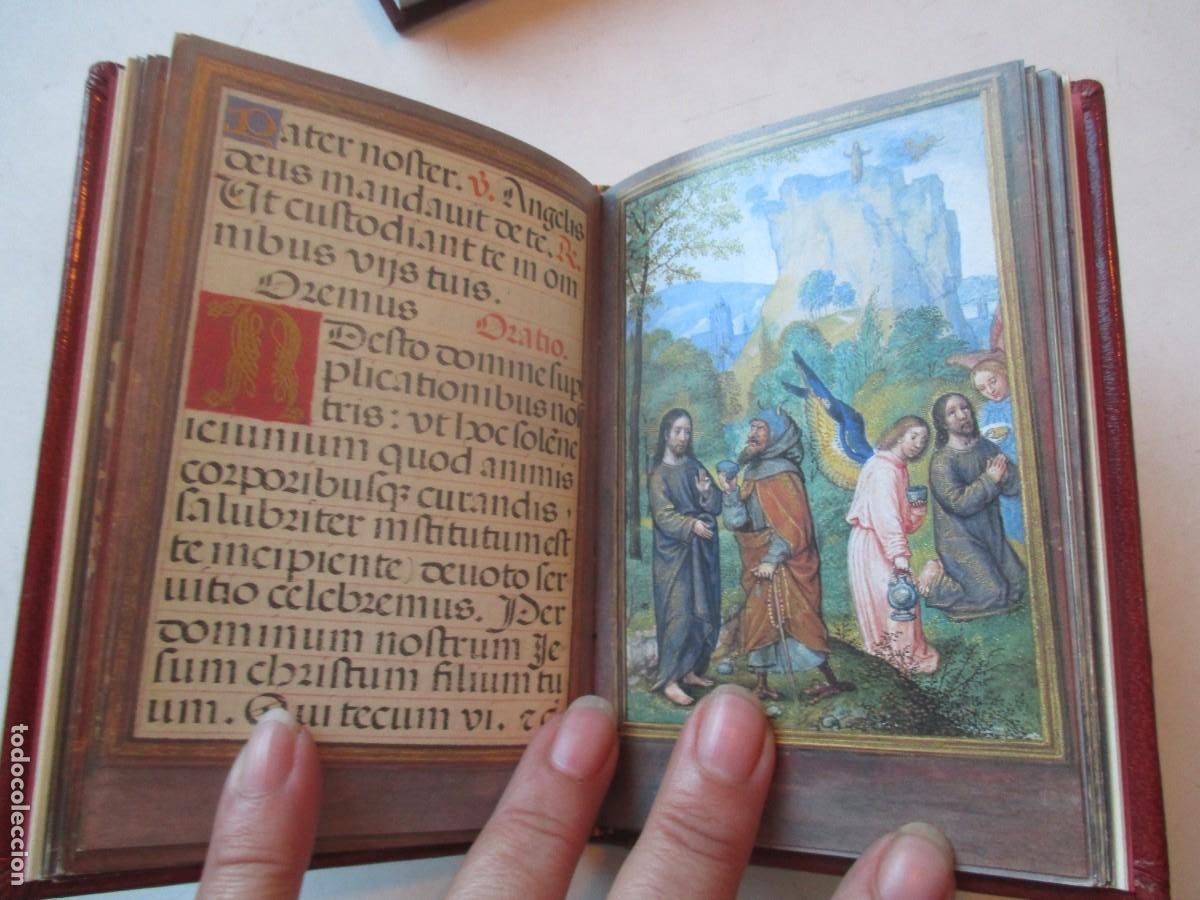 Pater noster. V. Angelis
deus mandauit de te. R.
Vt custodiant te in om
nibus vijs tuis.
Oremus
Oratio.
Adesto domine sup
plicationibus nos
tris: vt hoc solēne
ieiunium quod animis
corporibusqꝫ curandis.
salubriter institutum est
te incipiente) deuoto ser
uitio celebremus. Per
dominum nostrum Je
sum christum filium tu
um. Qui tecum vi. ⁊c̄
todocoleccion